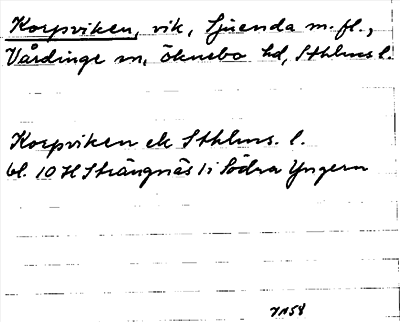 Korpviken, vik, Sjuenda m. fl.,
Vårdinge sn, Öknebo hd, Sthlms l.
Korpviken ek Sthlms. l.
bl. 10 H Strängnäs 1i Södra Yngern